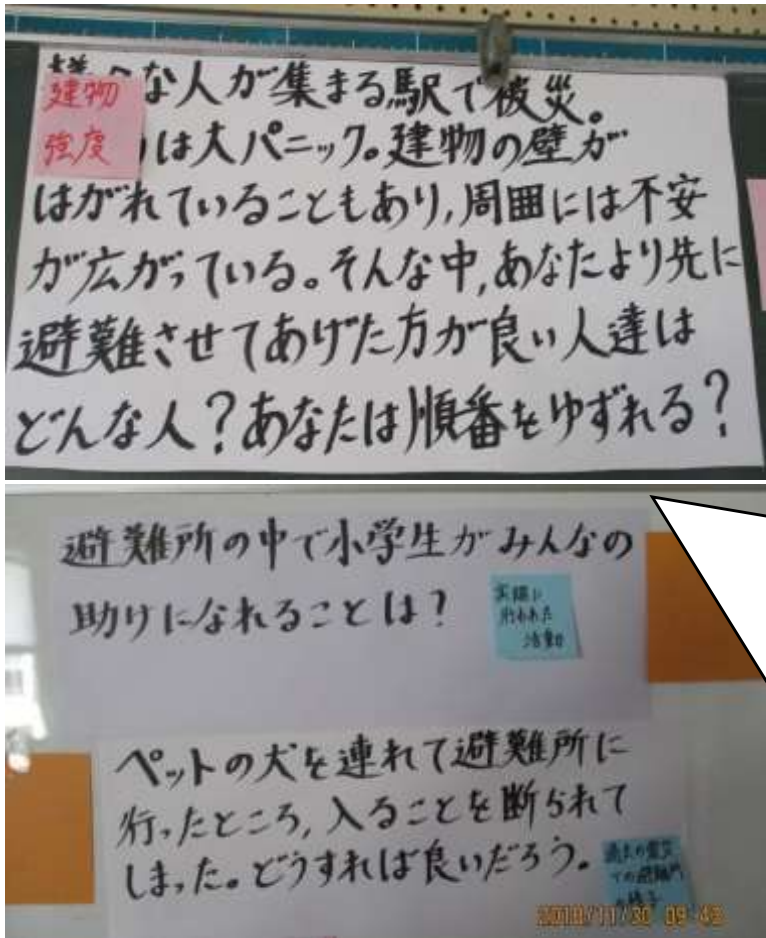 建物
強度
な人が集まる駅で被災。
は大パニック。建物の壁が
はがれていることもあり,周囲には不安
が広がっている。そんな中,あなたより先に
避難させてあげた方が良い人達は
どんな人?あなたは順番をゆずれる?
避難所の中で小学生がみんなの
助けになれることは?
実際に
行われた
活動
ペットの犬を連れて避難所に
行ったところ,入ることを断られて
しまった。どうすれば良いだろう。
過去の震災
での避難所
の様子
2018/11/30 09:43